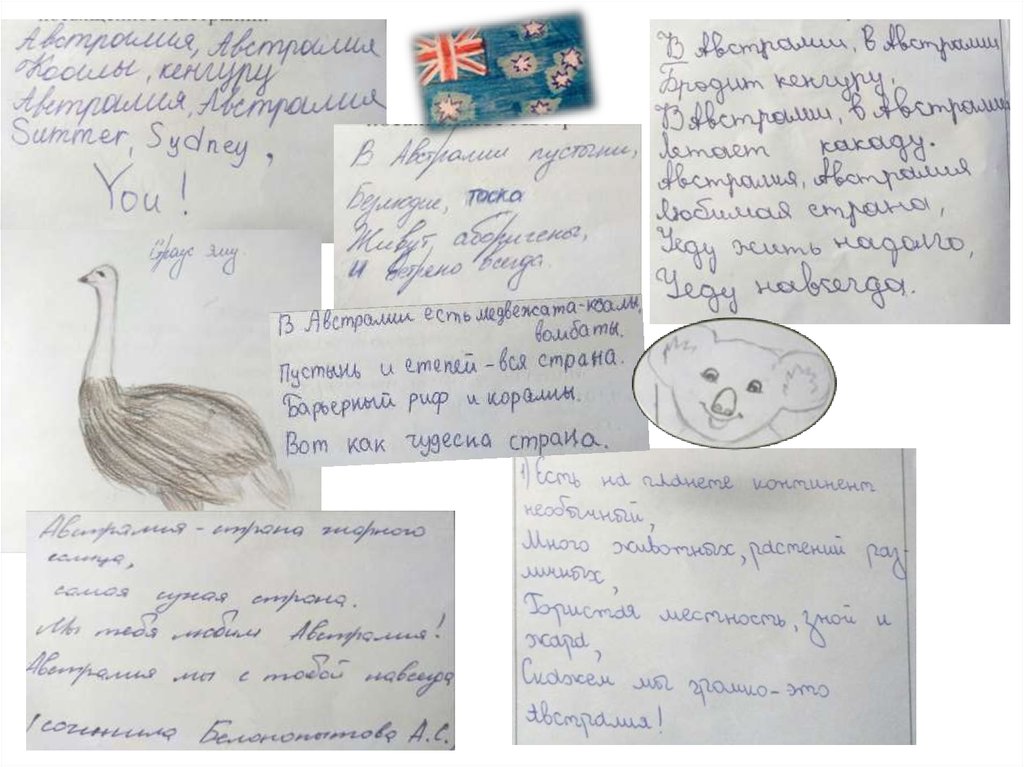 Австралия, Австралия
Коалы, кенгуру
Австралия, Австралия
Summer, Sydney,
You!
В Австралии пустыни,
Безлюдие, тоска
Живут аборигены,
И всегда.
В Австралии, в Австралии
Бродит кенгуру.
В Австралии, в Австралии
Летает какаду.
Австралия, Австралия
Любимая страна,
Уеду жить надолго,
Уеду навсегда.
Страус эму.
В Австралии есть медвежата-коалы,
вомбаты.
Пустынь и степей - вся страна.
Барьерный риф и кораллы.
Вот как чудесна страна.
Австралия - страна жаркого
солнца,
самая сухая страна.
Мы тебя любим Австралия!
Австралия мы с тобой навсегда
сочинила Белокопытова А.С.
1) Есть на планете континент
необычный,
Много животных, растений раз-
личных,
Гористая местность, зной и
жара,
Скажем мы громко - это
Австралия!